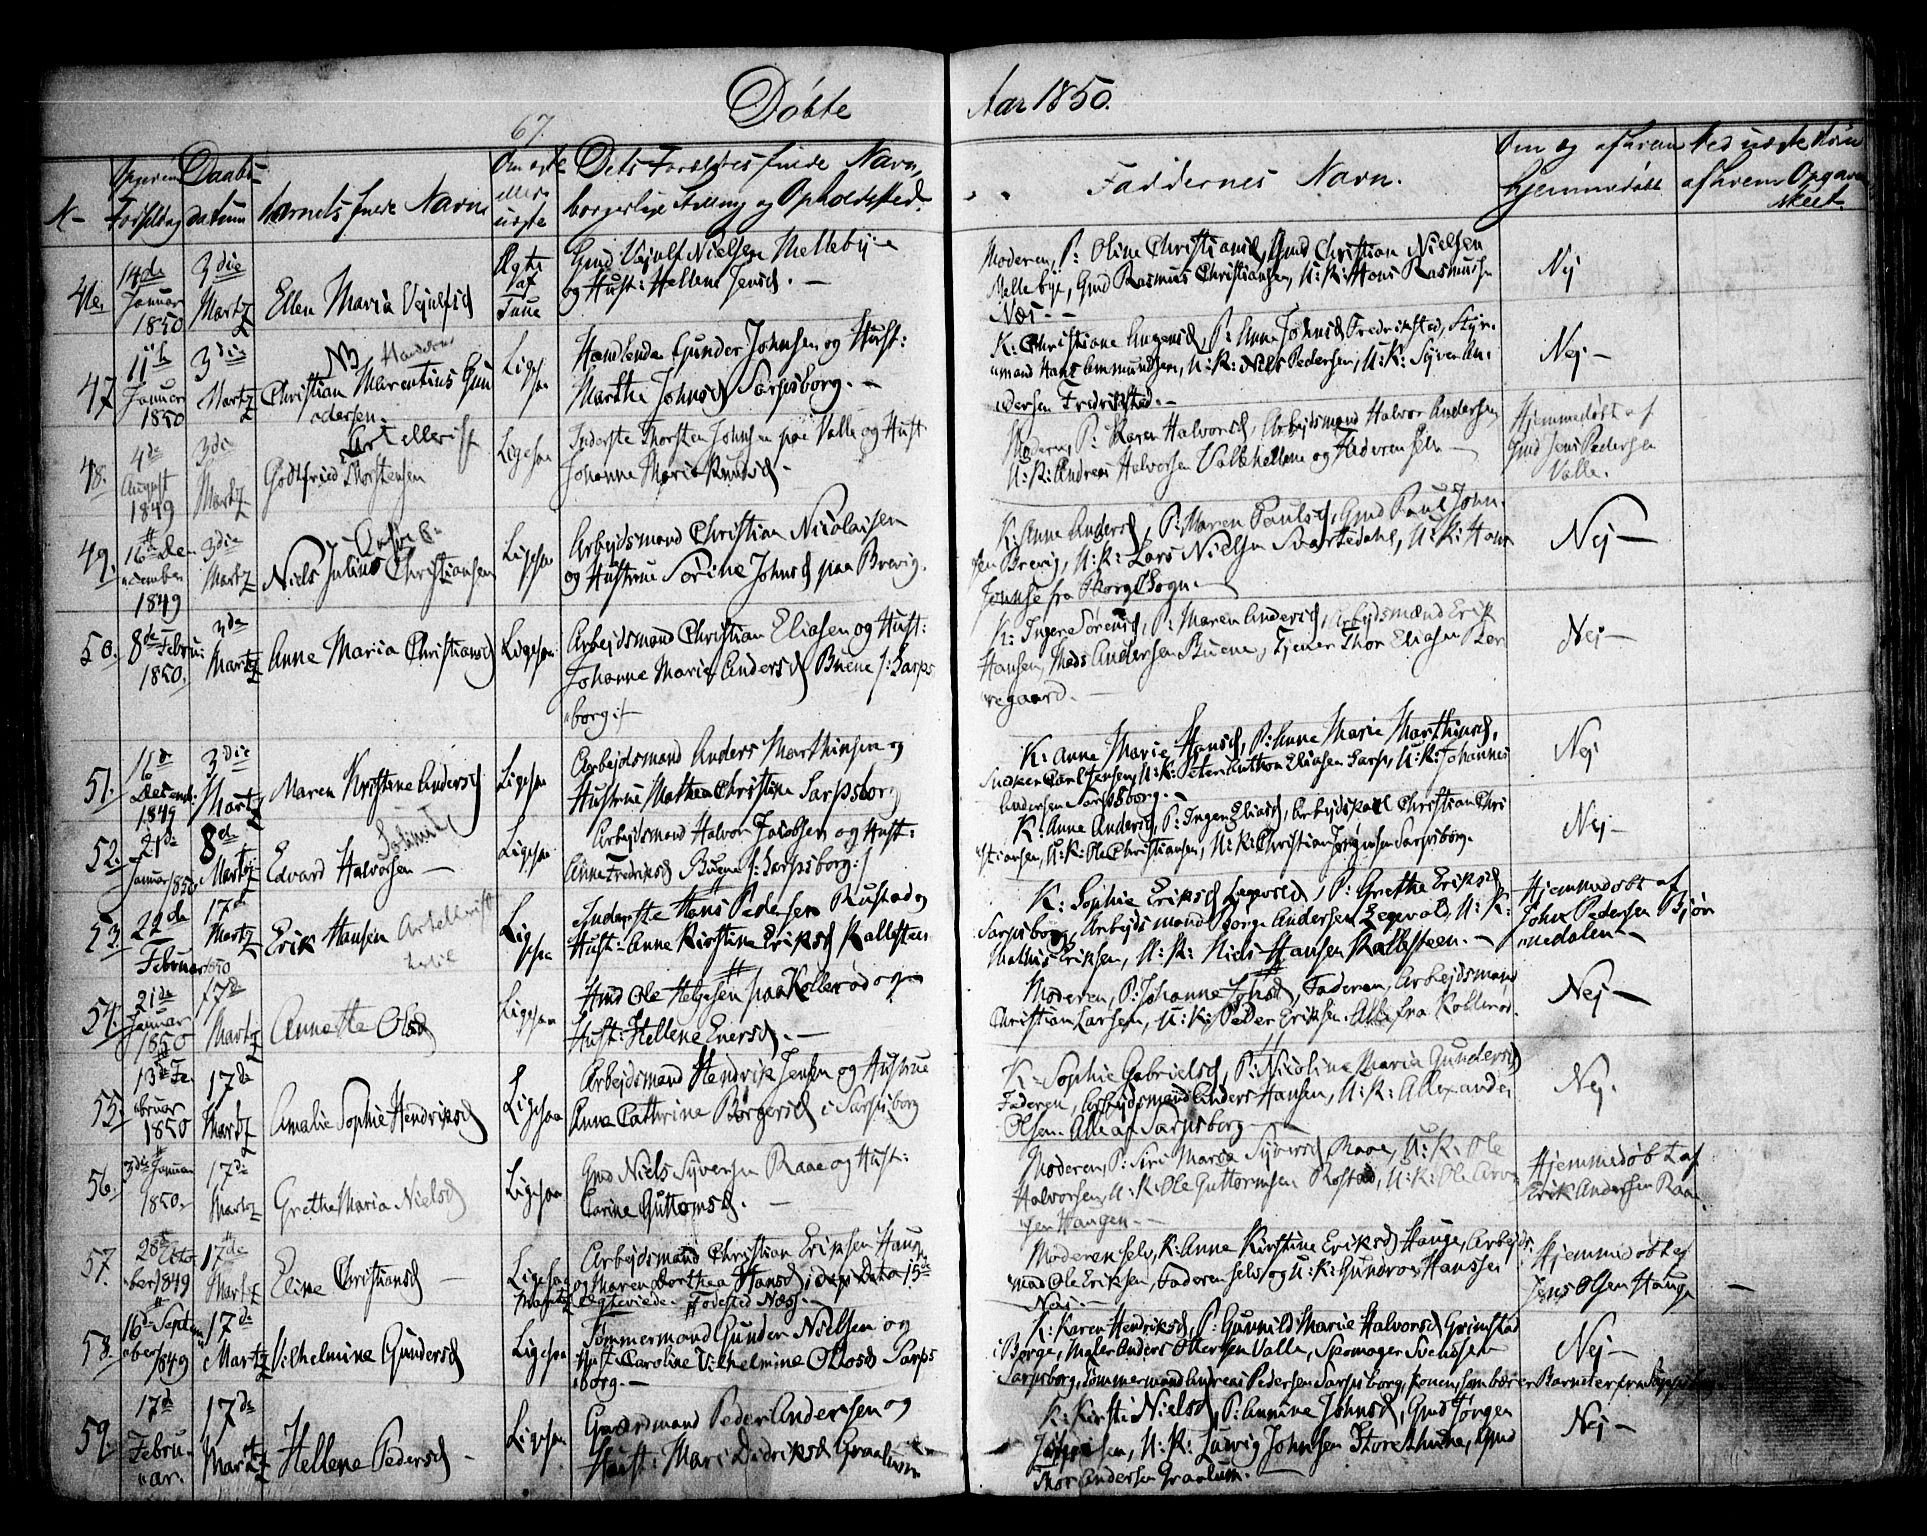 Døbte
Aar 1850.
67.
Daabs-
datum
Barnets fulde Navn
Om ægte
eller
uægte
Dets Forældres fulde Navn,
borgerlige Stilling og Opholdssted.
Faddernes Navn.
Om og af hvem
hjemmedøbt
46.
14de
Januar
1850
3die
Martz
Ellen Maria Vejulfsd
Ægte
Gmd Vejulf Nielsen Mellebye
og Hust: Hellene Jensd. -
Moderen, P: Oline Christiansd, Gmd Christian Nielsen
Mellebye, Gmd Rasmus Christiansen, U:K: Hans Rasmusen
Næs -
Nej
47
11te
Januar
1850
3die
Martz
NB
Christian Marentius Gun
dersen.
Ligesaa
Handlende Gunder Johnsen og Hust:
Marthe Johnsd Sarpsborg. -
K: Christiane Augensd, P: Anne Johnsd Fredrikstad, Styr-
mand Hans Ammundsen, U:K: Niels Pedersen, U:K: Syver An-
dersen Fredrikstad. -
Nej -
48.
4de
August
1849
3die
Martz
Godtfried Thorstensen
Ligesaa
Inderste Thorsten Johnsen paa Valle og Hust
Johanne Marie Knudsd. -
Moderen, P: Karen Halvorsd, Arbejdsmand Halvor Andersen,
U:K: Andreas Halvorsen Vallehellene og Faderen selv -
Hjemmedøbt af
Gmd Jens Pedersen
Valle.
49.
16de
1849
3die
Martz
Niels Julius Christiansen
Ligesaa
Arbejdsmand Christian Nicolaisen
og Hustrue Sørine Johnsd paa Brevig.
K: Anne Andersd, P: Maren Paulsd, Gmd Paul John-
sen Brevig, U:K: Lars Nielsen Svartedahl, U:K: Hans
Johnse fra Borge Sogn. -
Nej -
50.
8de Febru:
1850.
3die
Martz
Anne Maria Christiansd
Ligesaa
Arbejdsmand Christian Eliasen og Hust:
Johanne Marie Andersd Buene /: Sarps
borg :/
K: Inger Sørensd, P: Maren Andersd, Arbejdsmænd Erik
Hansen, Mads Andersen Buene, Tjener Thor Eliasen Bor
regaard. -
Nej -
51.
16de
Decemb:
1849
3die
Martz
Maren Kristine Andersd
Ligesaa
Arbejdsmand Anders Marthinsen og
Hustrue Mathea Christine Sarpsborg
K: Anne Marie Hansd, P: Anne Marie Marthinsd,
Snedker Carl Jensen, U:K: Peter Anthon Eliasen Sarp, U:K: Johannes
Andersen Sarpsborg. -
Nej
52.
21de
Januar 1850
8de
Martz
Edvard Halvorsen -
Ligesaa
Arbejdsmand Halvor Jacobsen og Hust:
Anne Fredriksd Buene /: Sarpsborg :/
K: Anne Andersd, P: Inger Eliasd, Arbejdskarl Christian Chri
stiansen, U:K: Ole Christiansen, U:K: Christian Jørgensen Sarpsborg.
Nej -
53.
22de
Februar 1850
17de
Martz
Erik Hansen
Ligesaa
Inderste Hans Pedersen Rustad og
Hust: Anne Kirstine Eriksd Kallesteen
K: Sophie Eriksd, P: Grethe Eriksd
Sarpsborg, Arbejdsmand Borge Andersen, U:K:
Mathis Eriksen, U:K: Niels Hansen Kallesteen. -
Hjemmedøbt af
John Pedersen Bjør
nedalen -
54.
21de
Januar
1850
17de
Martz
Annette Olsd
Ligesaa
Gmd Ole Helgesen paa Kollerød og
Hust: Hellene Enersd. -
Moderen, P: Johanne Johsd, Faderen, Arbejdsmand
Christian Larsen, U:K: Peder Eriksen. Alle fra Kollerød.
Nej -
55.
13de Fe-
bruar
1850
17de
Martz
Amalie Sophie Hendriksd
Ligesaa
Arbejdsmand Hendrik Jensen og Hustrue
Anne Cathrine Børgersd i Sarpsborg
K- Sophie Gabrielsd, P: Nicoline Maria Gundersd
Faderen, Arbejdsmand Anders Hansen, U:K: Allexander
Olsen. Alle af Sarpsborg -
Nej.
56.
3die Januar
1850.
17de
Martz
Grethe Maria Nielsd
Ligesaa
Gmd Niels Syversen Raae og Hust:
Carine Guttormsd. -
Moderen, P: Siri Maria Syversd Raae, U:K: Ole
Halvorsen, U:K: Ole Guttormsen Rostad, U:K: Ole Arve
sen Haugen. -
Hjemmedøbt af
Erik Andersen Raae
57.
28de Octo
ber 1849
17de
Martz
Eline Christiansd -
Ligesaa
Arbejdsmand Christian Eriksen Hauge
og Maren Dorthea Hansd, Dato 15de
Martz Ægteviede. Fødested Næss. -
Moderen selv, K: Anne Kirstine Eriksd Hauge, Arbejds-
mand Ole Eriksen, Faderen selv og U:K: Gundro Hanssen
Næs. -
Hjemmedøbt af
Jens Olsen Hauge
58.
16de Septem
ber 1849
17de
Martz
Vilhelmine Gundersd
Ligesaa
Tømmermand Gunder Nielsen og
Hust: Caroline Vilhelmine Olsd Sarps
borg. -
K: Karen Hendriksd, P: Gunnild Marie Halvorsd Grimstad
i Borge, Maler Anders Ottersen Valle, Skomager Svendsen
Sarpsborg, Tømmermand Andreas Pedersen Sarpsborg, Konen, som bærer Barnet er fra Sarpsborg
Nej -
59.
17de
Febru-
ar.
17de
Martz
Hellene Pedersd -
Ligesaa
Gaardmand Peder Andersen og
Hust: Mari Didriksd Graalum
K: Kirsti Nielsd, P: Annine Johnsd, Gmd Jørgen
U:K: Ludvig Johnsen Storethune, Gmd
Thor Andersen Graalum. -
Nej -